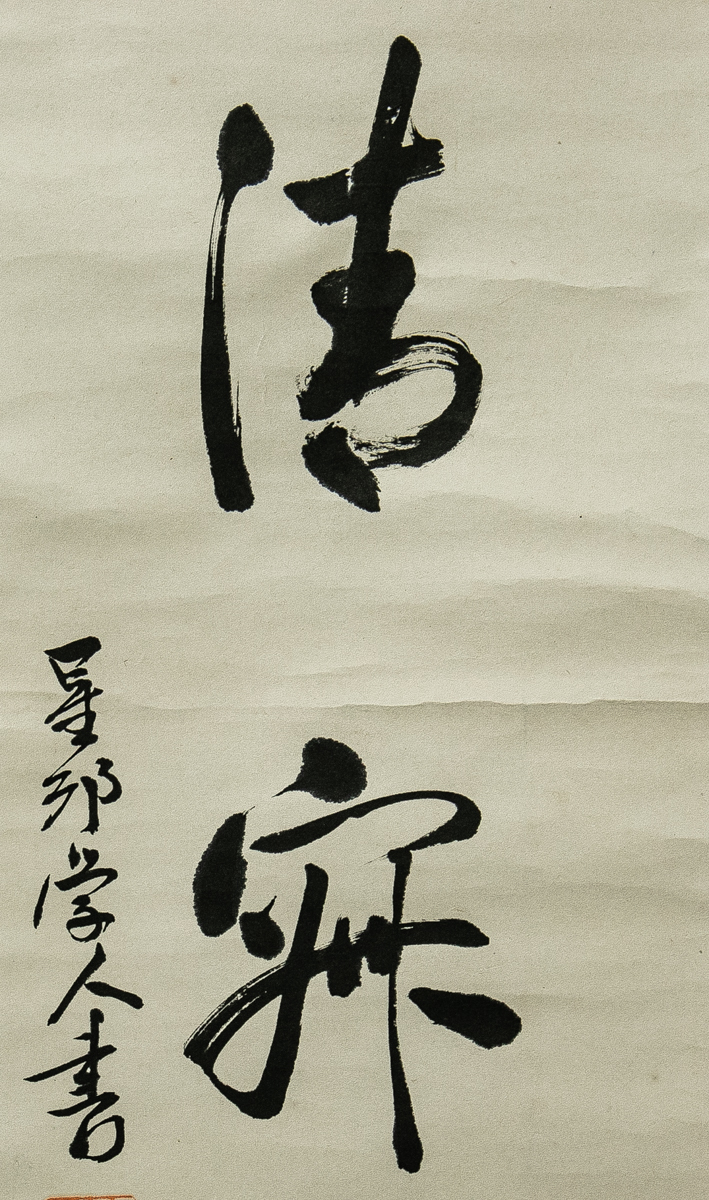 清寂
星邨学人書